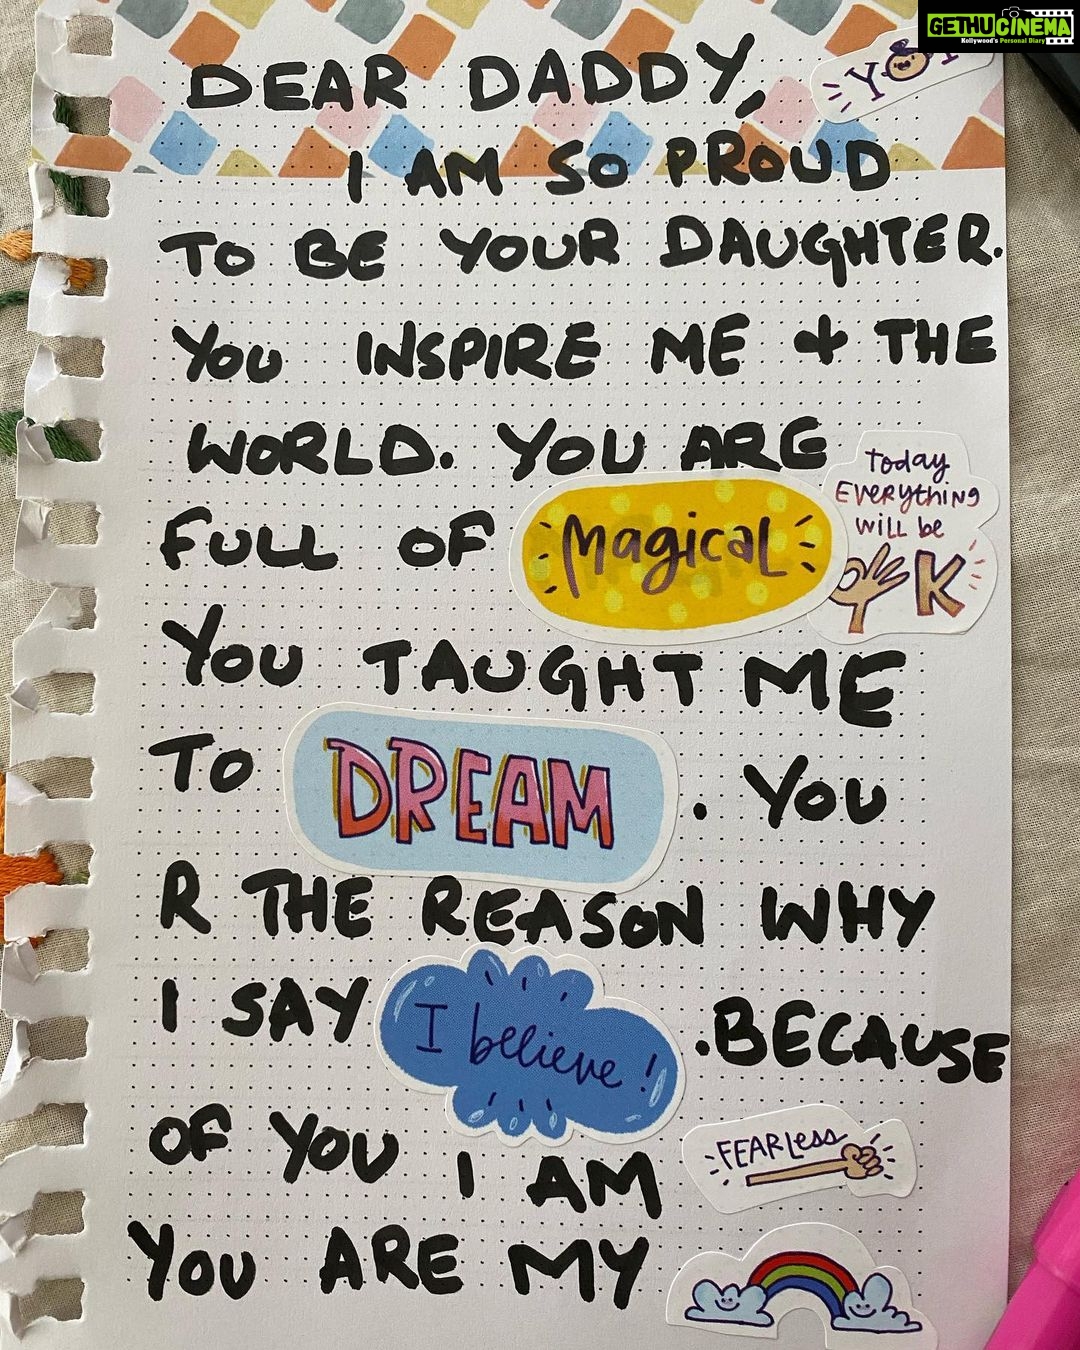 GETHU CINEMA
Kollywood's Personal Diary
DEAR DADDY,
I AM SO PROUD
TO BE YOUR DAUGHTER.
YOU INSPIRE ME + THE
WORLD. YOU ARE
FULL OF Magical
Today
EVERYthiNG
WiLL be
OK
YOU TAUGHT ME
TO DREAM. YOU
R THE REASON WHY
I SAY I believe! .BECAUSE
OF YOU I AM FEARLess
YOU ARE MY